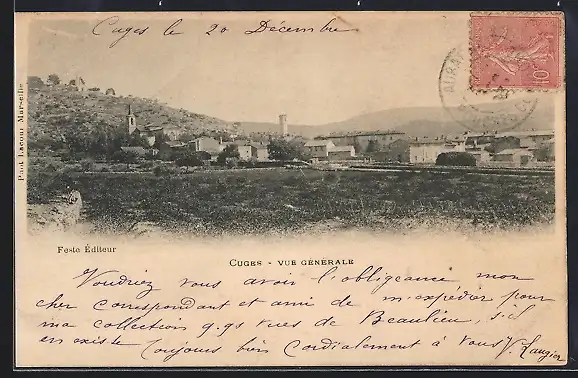 Cuges le 20 Décembre
10
Paul Lacour Marseille
Feste Éditeur
CUGES - VUE GÉNÉRALE
Voudriez vous avoir l'obligeance mon
cher correspondant et ami de m'expédier pour
ma collection q.qs vues de Beaulieu, s'il
en existe Toujours bien cordialement à vous V. Laugier